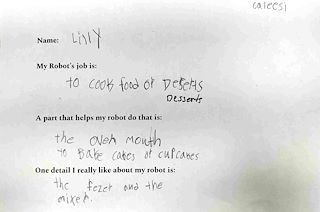 calecsi
Name: Lilly
My Robot's job is:
to cook food or Deserts
Desserts
A part that helps my robot do that is:
the oven mouth
to Bake cakes or cupcakes
One detail I really like about my robot is:
the fezer and the
mixer.